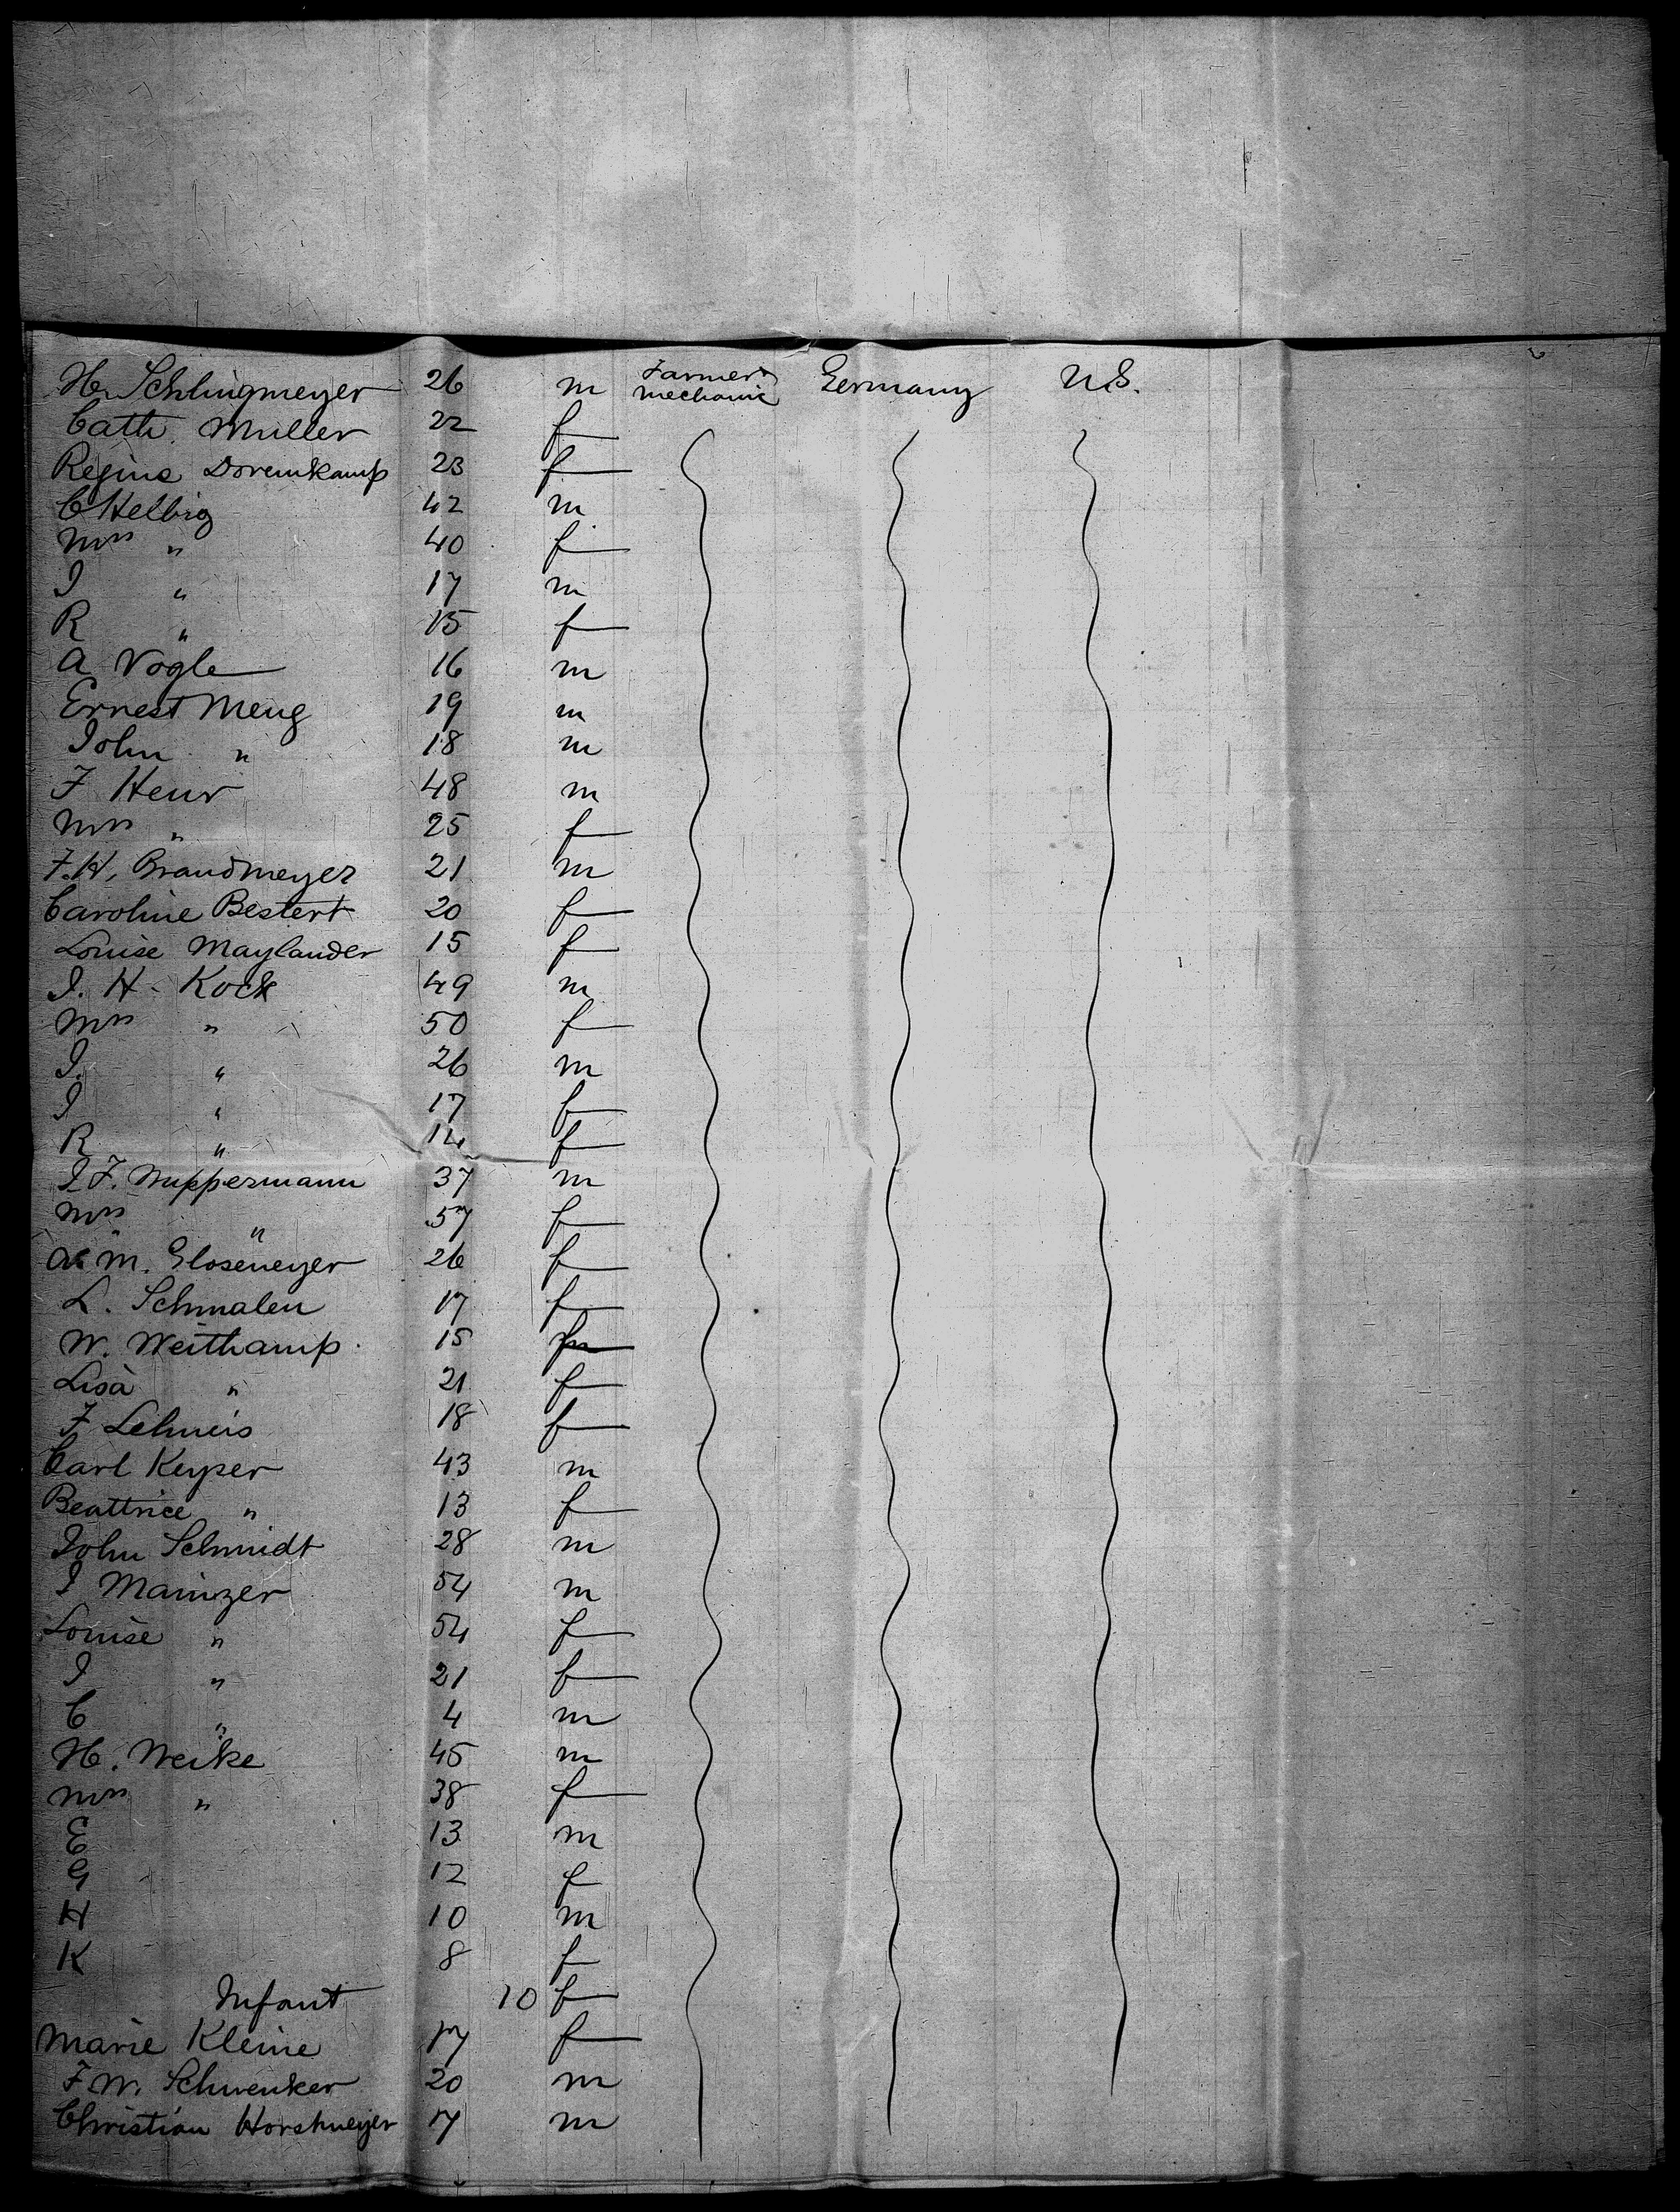 H. Schlingmeyer 26 m Farmer & mechanic Germany U.S.
Cath. Muller 22 f
Regina Doremkamp 23 f
C Helbig 42 m
Mrs " 40 f
I " 17 m
R " 15 f
A Vogle 16 m
Ernest Meng 19 m
John " 18 m
F Heur 48 m
Mrs " 25 f
F. H. Brandmeyer 21 m
Caroline Bestert 20 f
Louise Maylander 15 f
I. H. Kock 49 m
Mrs " 50 f
I. " 26 m
I " 17 f
R " 14 f
I F. Wuppermann 37 m
Mrs " 57 f
M. Gloseneyer 26 f
L. Schmalen 17 f
W. Weithamp 15
Lisa " 21 f
F Lehneis 18 f
Carl Keyser 43 m
Beattrice " 13 f
John Schmidt 28 m
I Mainzer 54 m
Louise " 54 f
I " 21 f
C " 4 m
H. Weike 45 m
Mrs " 38 f
E 13 m
G 12 f
H 10 m
K 8 f
Infant 10 f
Marie Kleine 17 f
F W. Schwenker 20 m
Christian Horstmeyer 17 m